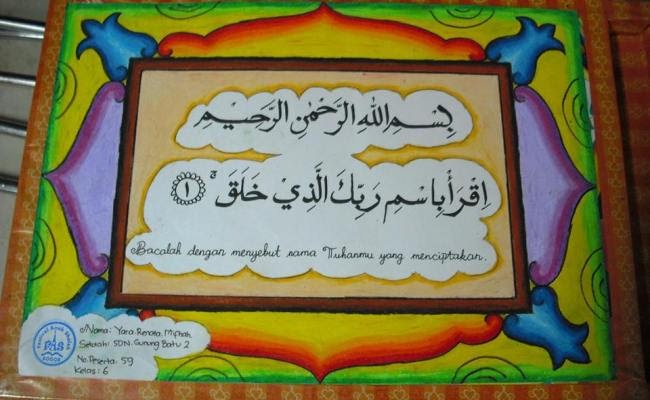 بِسْمِ اللهِ الرَّحْمٰنِ الرَّحِيْمِ
اِقْرَأْ بِاسْمِ رَبِّكَ الَّذِيْ خَلَقَ ۚ ١
Bacalah dengan menyebut nama Tuhanmu yang menciptakan.
Nama: Yara Renata Miftah
Sekolah: SDN. Gunung Batu 2
No. Peserta: 59
Kelas: 6
FAS
BOGOR